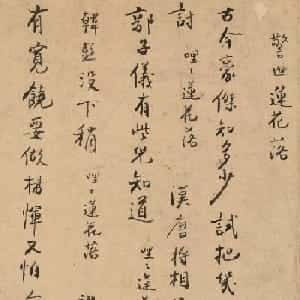 警世蓮花落
古今豪傑知多少試把
討 哩〻蓮花落 漢唐將相
郭子儀有些兒知道 哩〻蓮
韓 沒下稍 哩〻蓮花落
有寬饒要做楊惲又怕